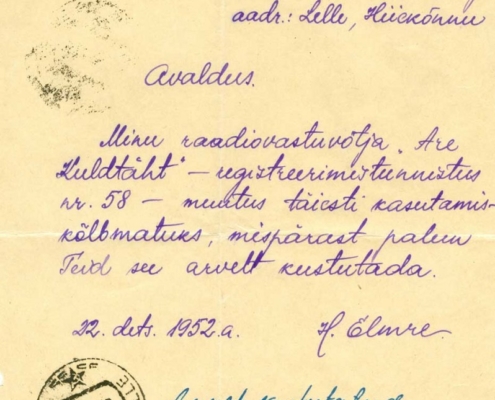 aadr.: Lelle, Hiiekõnnu
Avaldus.
Minu raadiovastuvõtja „Are
Kuldtäht" – registreerimistunnistus
nr. 58 – muutus täiesti kasutamis-
kõlbmatuks, mispärast palun
Teid see arvelt kustutada.
22. dets. 1952.a. H. Elmre.